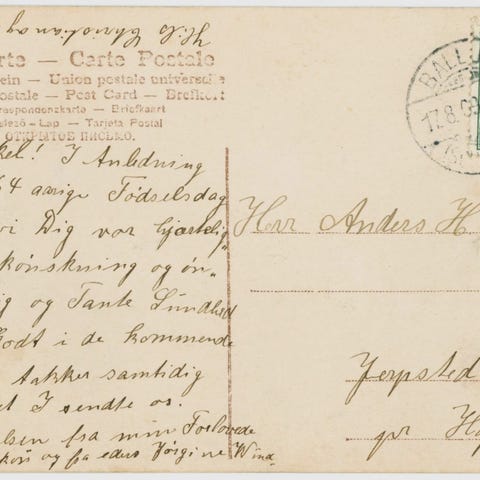 H.S. Christian
rte — Carte Postale
ein — Union postale universelle
ostale — Post Card — Brefkort
respondenzkarte — Briefkaart
elező-Lap — Tarjeta Postal
ОТКРЫТОЕ ПИСЬМО.
kel! I Anledning
64 aarige Födselsdag
vi Dig vor hjærtelig
könskning og ön
ig og Tante Lundhed
Godt i de kommende
takker samtidig
et I sendte os.
lsen fra min Forlovede
og fra eders Jörgine Wind.
BALLU
17.8.09
Herr Anders H
Jerpsted
pr